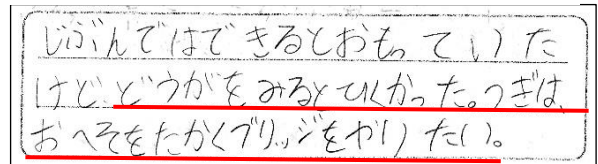 じぶんではできるとおもっていた
けど、どうがをみるとひくかった。つぎは、
おへそをたかくブリッジをやりたい。